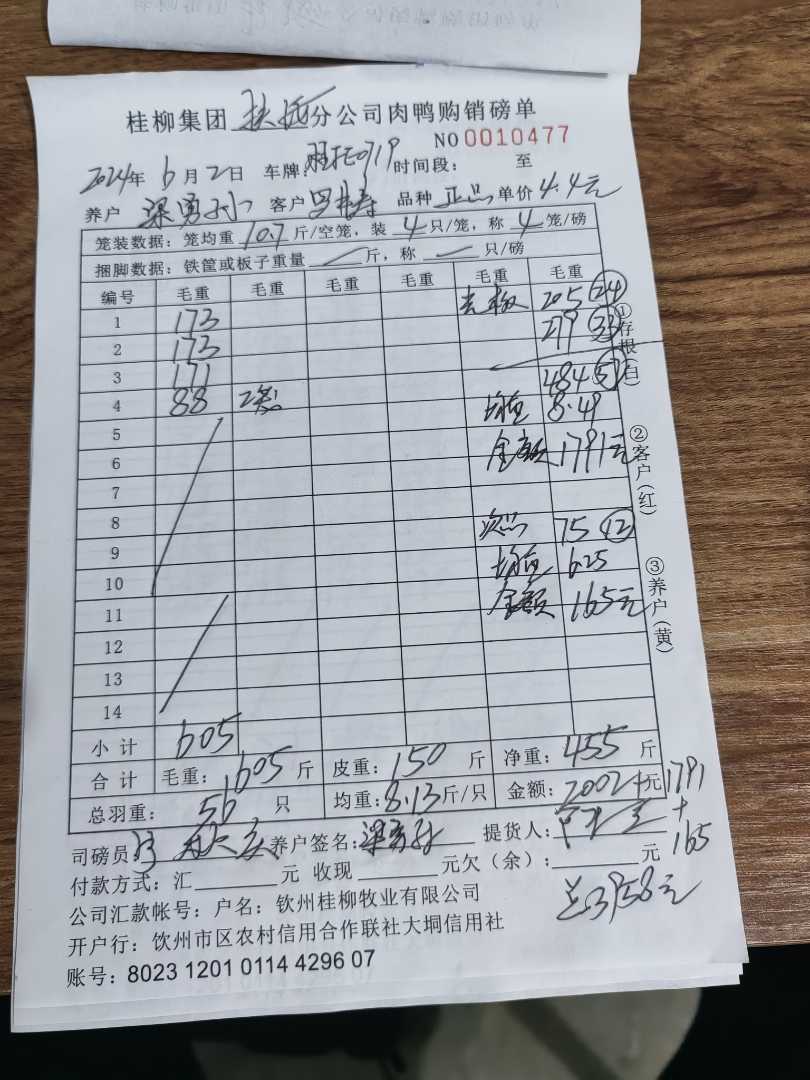 桂柳集团 分公司肉鸭购销磅单
NO 0010477
2024年 6月 2日 车牌: 0719 时间段: 至
养户 梁勇 客户 品种 正品 单价 4.4元
笼装数据: 笼均重 10.7 斤/空笼, 装 4 只/笼, 称 4 笼/磅
捆脚数据: 铁筐或板子重量 斤, 称 只/磅
编号 毛重 毛重 毛重 毛重 毛重 毛重
1 173 205 24
2 173 279 33
3 171 484 57
4 88 2笼 均重 8.49
5 金额 1791元
6
7
8 次品 75 12
9 均重 6.25
10 金额 165元
11
12
13
14
小计 605
合计 毛重: 605 斤 皮重: 150 斤 净重: 455 斤
总羽重: 56 只 均重: 8.13 斤/只 金额: 2002 元 1791
+
165
司磅员: 养户签名: 梁勇 提货人:
付款方式: 汇 元 收现 元欠(余): 元
总3958元
公司汇款帐号: 户名: 钦州桂柳牧业有限公司
开户行: 钦州市区农村信用合作联社大垌信用社
账号: 8023 1201 0114 4296 07
①存根(白)
②客户(红)
③养户(黄)